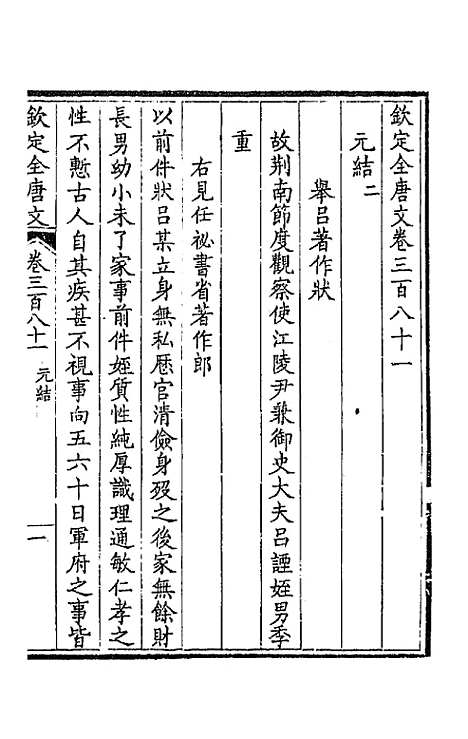 欽定全唐文卷三百八十一
元結二
舉呂著作狀
故荆南節度觀察使江陵尹兼御史大夫呂諲姪男季
重
右見任祕書省著作郎
以前件狀呂某立身無私歷官清儉身歿之後家無餘財
長男幼小未了家事前件姪質性純厚識理通敏仁孝之
性不慙古人自其疾甚不視事向五六十日軍府之事皆
欽定全唐文 卷三百八十一 元結 一